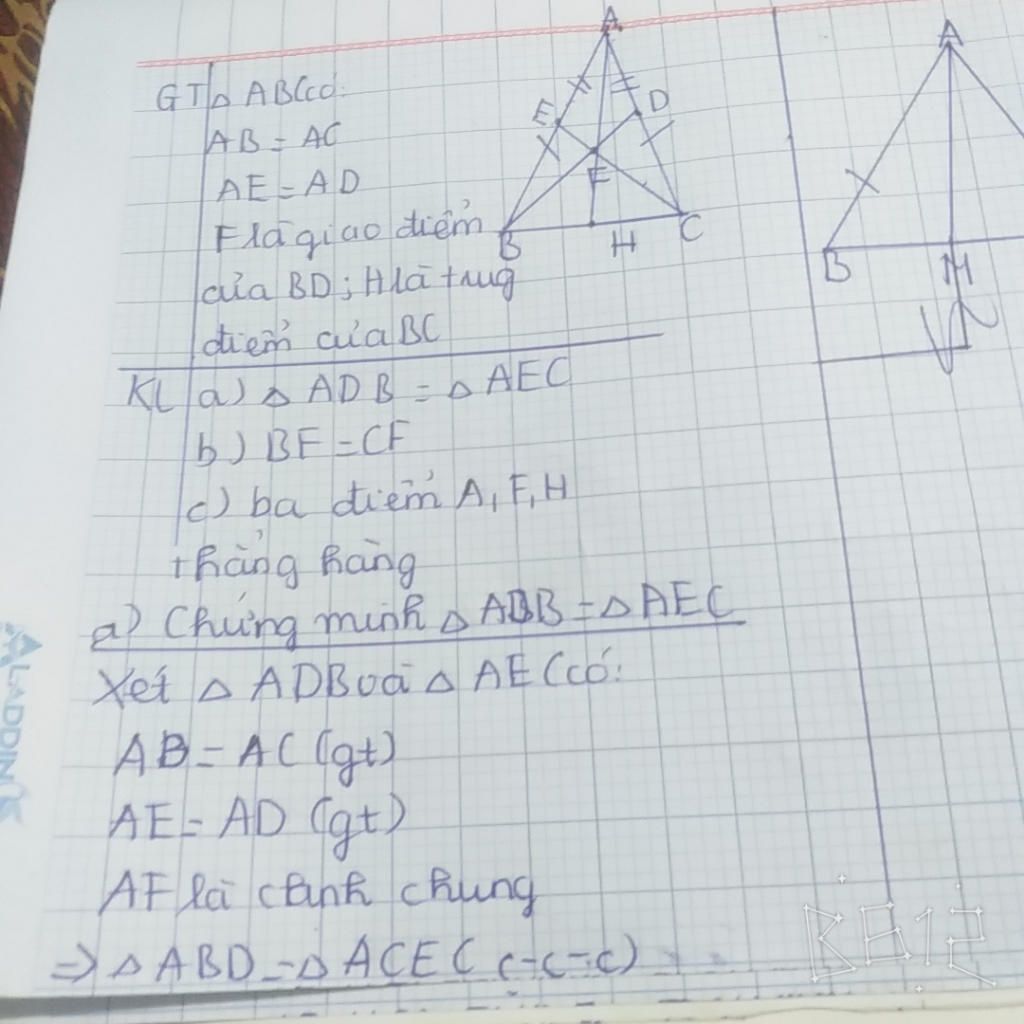 GT △ ABC có:
AB = AC
AE = AD
F là giao điểm
của BD ; H là trug
điểm của BC
KL a) △ ADB = △ AEC
b) BF = CF
c) ba điểm A, F, H
thẳng hàng
a) Chứng minh △ ABB = △ AEC
Xét △ ADB và △ AEC có:
AB = AC (gt)
AE = AD (gt)
AF là cạnh chung
⇒ △ ABD = △ ACEC (c-c-c)
A
E
D
F
B
H
C
A
B
H
ALADDIN
BB12